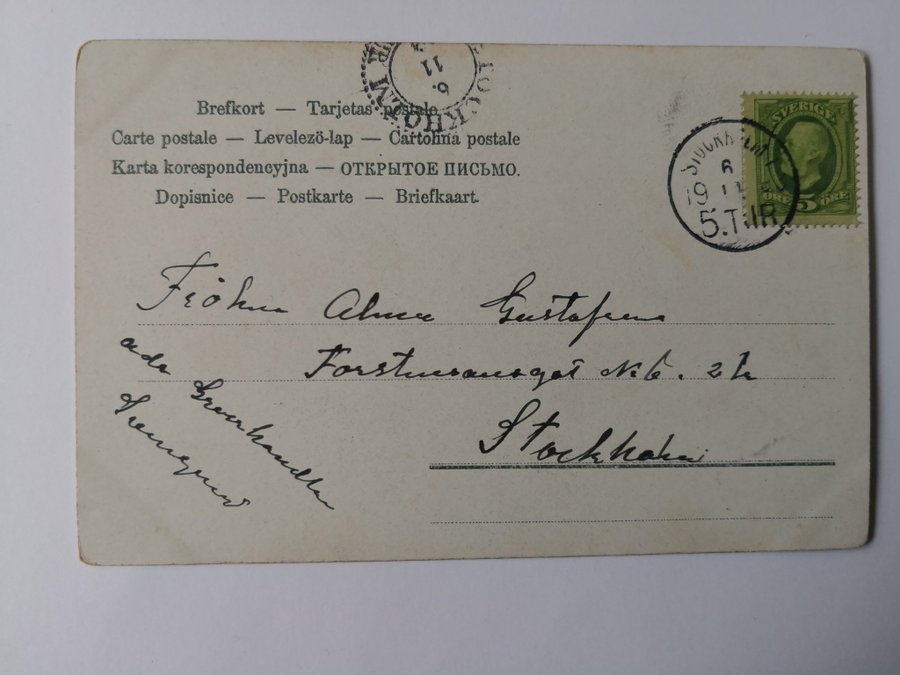 Brefkort — Tarjetas postale
Carte postale — Levelező-lap — Cartolina postale
Karta korespondencyjna — ОТКРЫТОЕ ПИСЬМО.
Dopisnice — Postkarte — Briefkaart.
STOCKHOLM
6
11
SVERIGE
5
ÖRE ÖRE
STOCKHOLM
6
19 11
5.TUR
Fröken Alma Gustafsson
No 6. 2 tr
Stockholm
adr